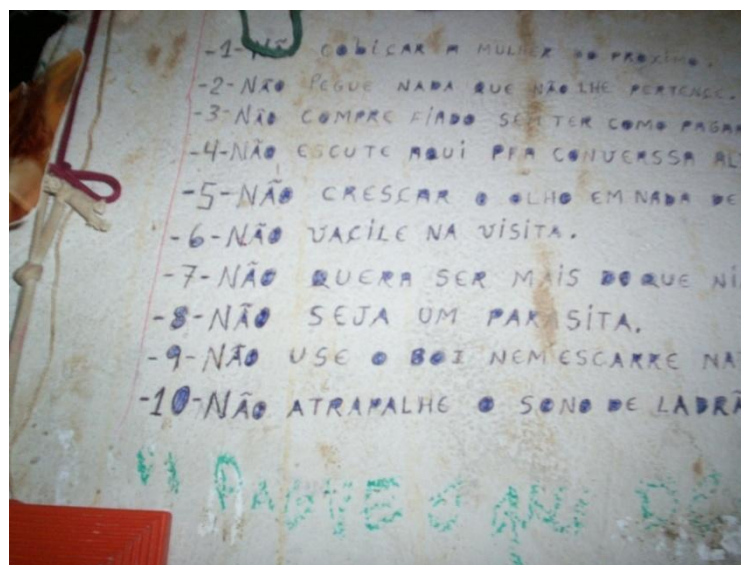 -1-NÃO COBIÇAR A MULHER DO PROXIMO.
-2-NÃO PEGUE NADA QUE NÃO LHE PERTENCE.
-3-NÃO COMPRE FIADO SEM TER COMO PAGAR
-4-NÃO ESCUTE AQUI PRA CONVERSSA AL
-5-NÃO CRESCAR O OLHO EM NADA DE
-6-NÃO VACILE NA VISITA.
-7-NÃO QUERA SER MAIS DO QUE NI
-8-NÃO SEJA UM PARASITA.
-9-NÃO USE O BOI NEM ESCARRE NA
-10-NÃO ATRAPALHE O SONO DE LADRÃ
PAGUE O QUE DE